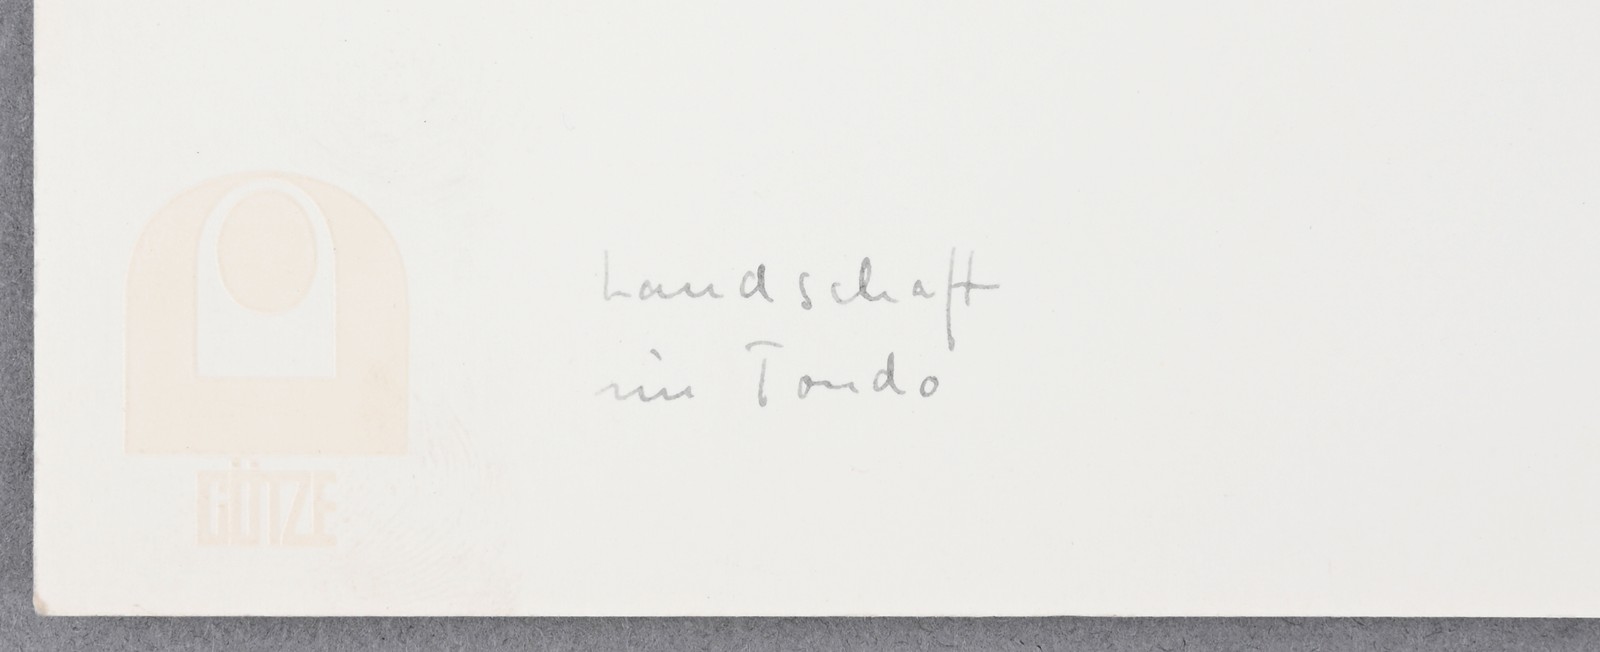 Landschaft
im Tondo
GÖTZE